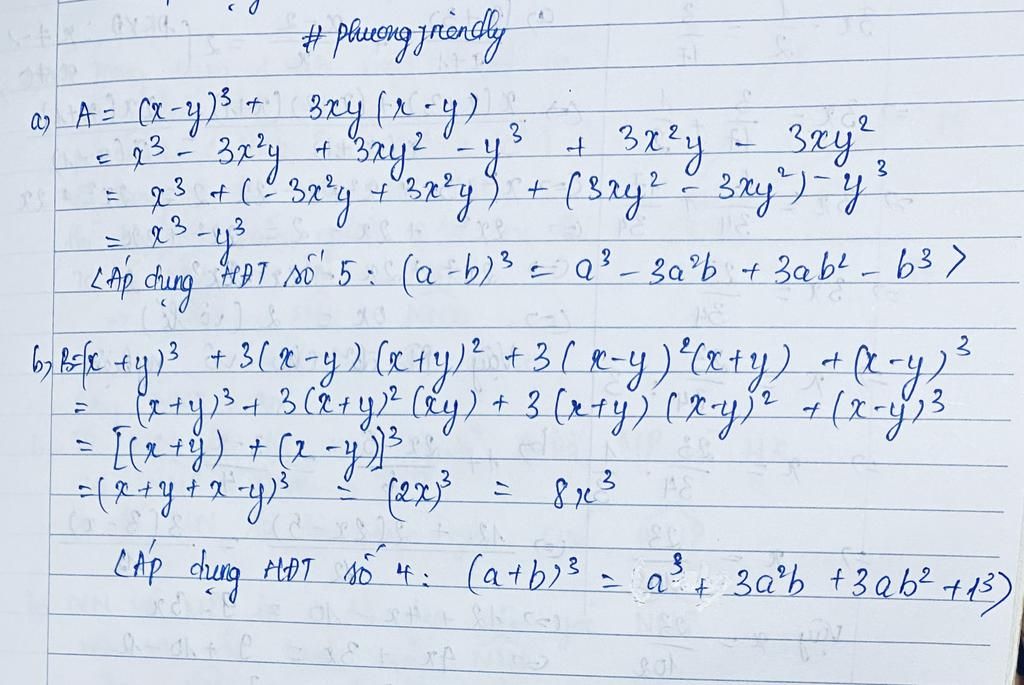 # phuongfriendly
a) A = (x-y)³ + 3xy(x-y)
= x³ - 3x²y + 3xy² - y³ + 3x²y - 3xy²
= x³ + (-3x²y + 3x²y) + (3xy² - 3xy²) - y³
= x³ - y³
<Áp dụng HĐT số 5: (a-b)³ = a³ - 3a²b + 3ab² - b³>
b) B=(x+y)³ + 3(x-y)(x+y)² + 3(x-y)²(x+y) + (x-y)³
= (x+y)³ + 3(x+y)²(xy) + 3(x+y)(x-y)² + (x-y)³
= [(x+y) + (x-y)]³
= (x+y+x-y)³ = (2x)³ = 8x³
<Áp dụng HĐT số 4: (a+b)³ = a³ + 3a²b + 3ab² + b³>